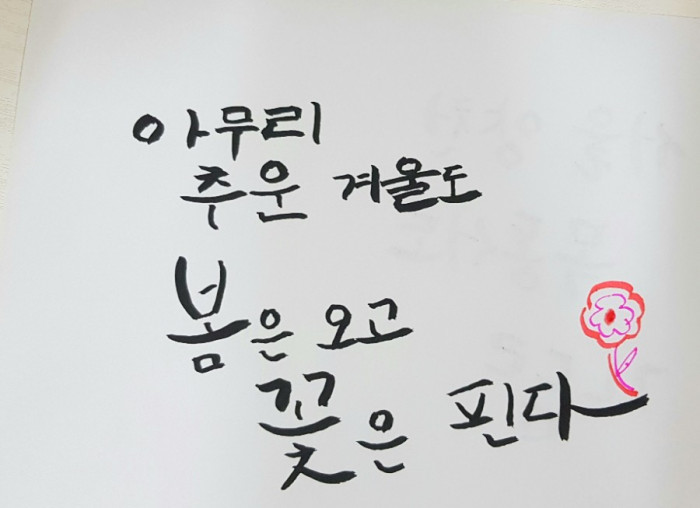 아무리
추운 겨울도
봄은 오고
꽃은 핀다